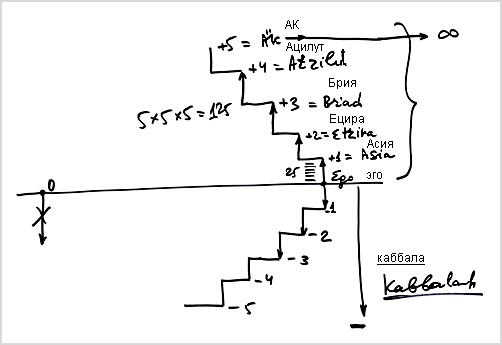 АК
+5 = AK → ∞
Ацилут
+4 = Atzilut
Брия
+3 = Briah
5×5×5=125
Ецира
+2 = Etzira
Асия
+1 = Asia
25
Ego эго
0
-1
-2
-3
каббала
-4
Kabbalah
-5
–